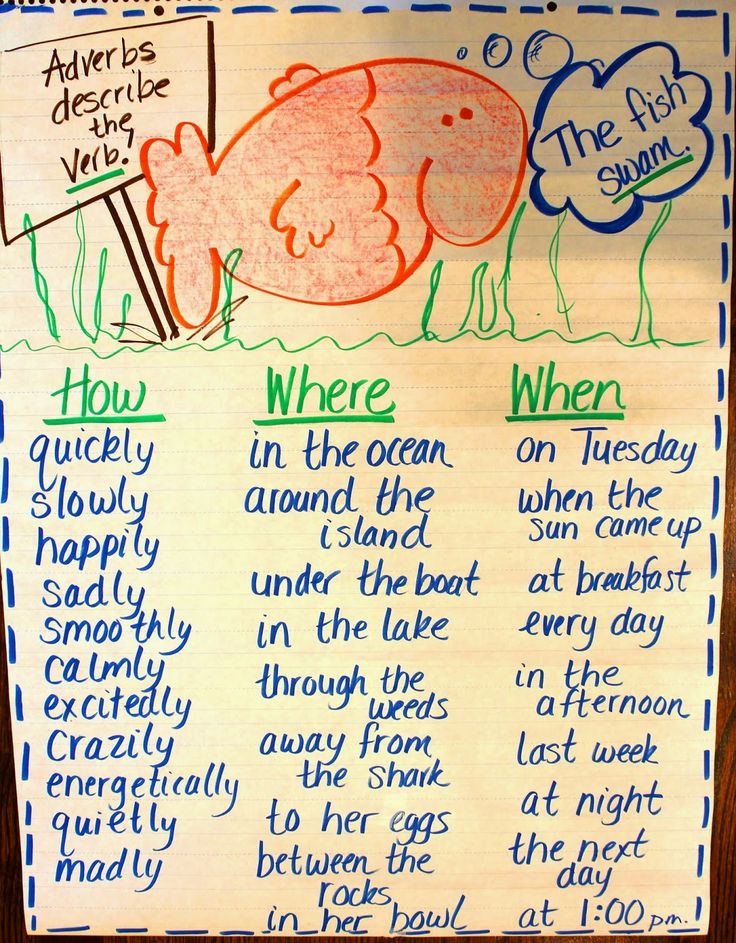 Adverbs
describe
the
verb!
The fish
swam.
How
quickly
slowly
happily
sadly
smoothly
calmly
excitedly
crazily
energetically
quietly
madly
Where
in the ocean
around the
island
under the boat
in the lake
through the
weeds
away from
the shark
to her eggs
between the
rocks
in her bowl
When
on Tuesday
when the
sun came up
at breakfast
every day
in the
afternoon
last week
at night
the next
day
at 1:00 p.m.